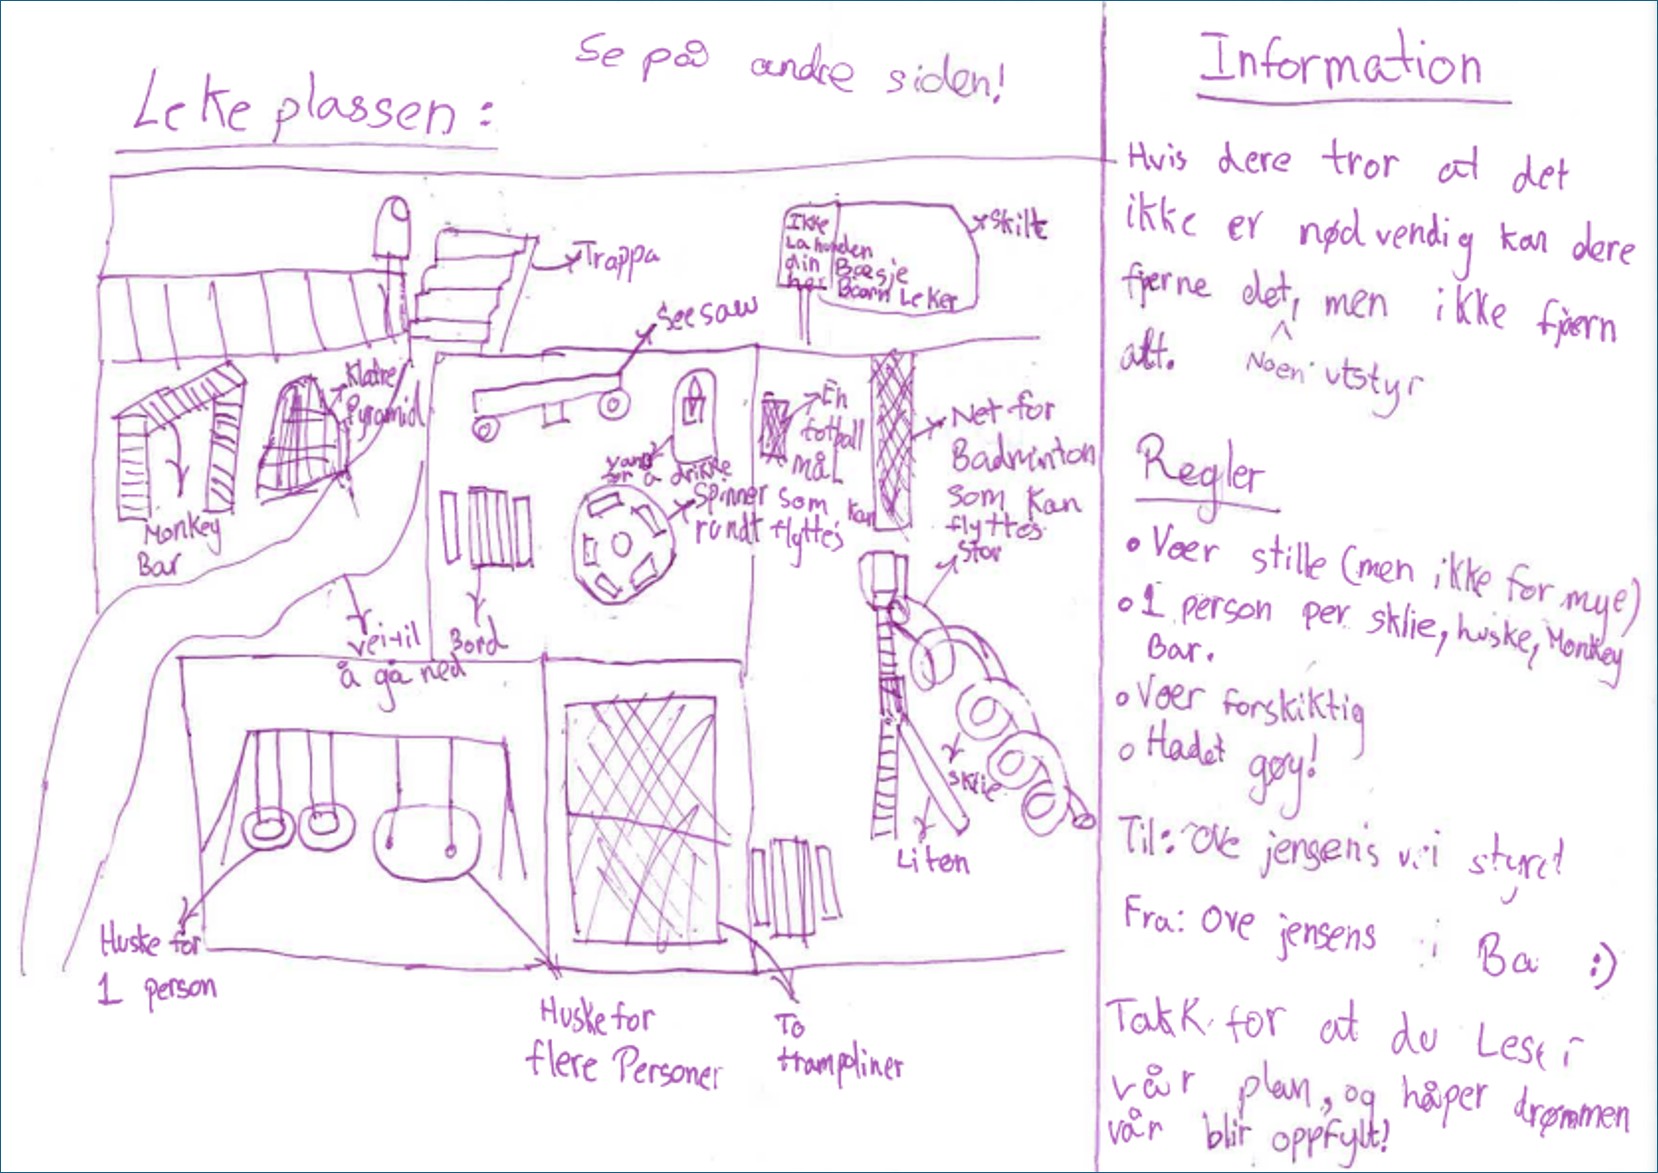 Se på andre siden!
Leke plassen:
Trappa
Ikke
La hunden
din Bæsje
her Bcarn Leker
Skilt
Seesaw
Klatre
Pyramid
Monkey
Bar
vann
for å drikke
Spinner som kan
rundt flyttes
En
fotball
mål
Net for
Badminton
som kan
flyttes
Stor
Bord
vei til
å gå ned
sklie
Liten
Huske for
1 person
Huske for
flere Personer
To
trampoliner
Information
Hvis dere tror at det
ikke er nødvendig kan dere
fjerne det, men ikke fjern
alt. Noen utstyr
Regler
• Vær stille (men ikke for mye)
• 1 person per sklie, huske, Monkey
Bar.
• Vær forskiktig
• Hadet gøy!
Til: Ove jensens vei styret
Fra: Ove jensens i Ba :)
Takk for at du Leser
vår plan, og håper drømmen
vår blir oppfylt!